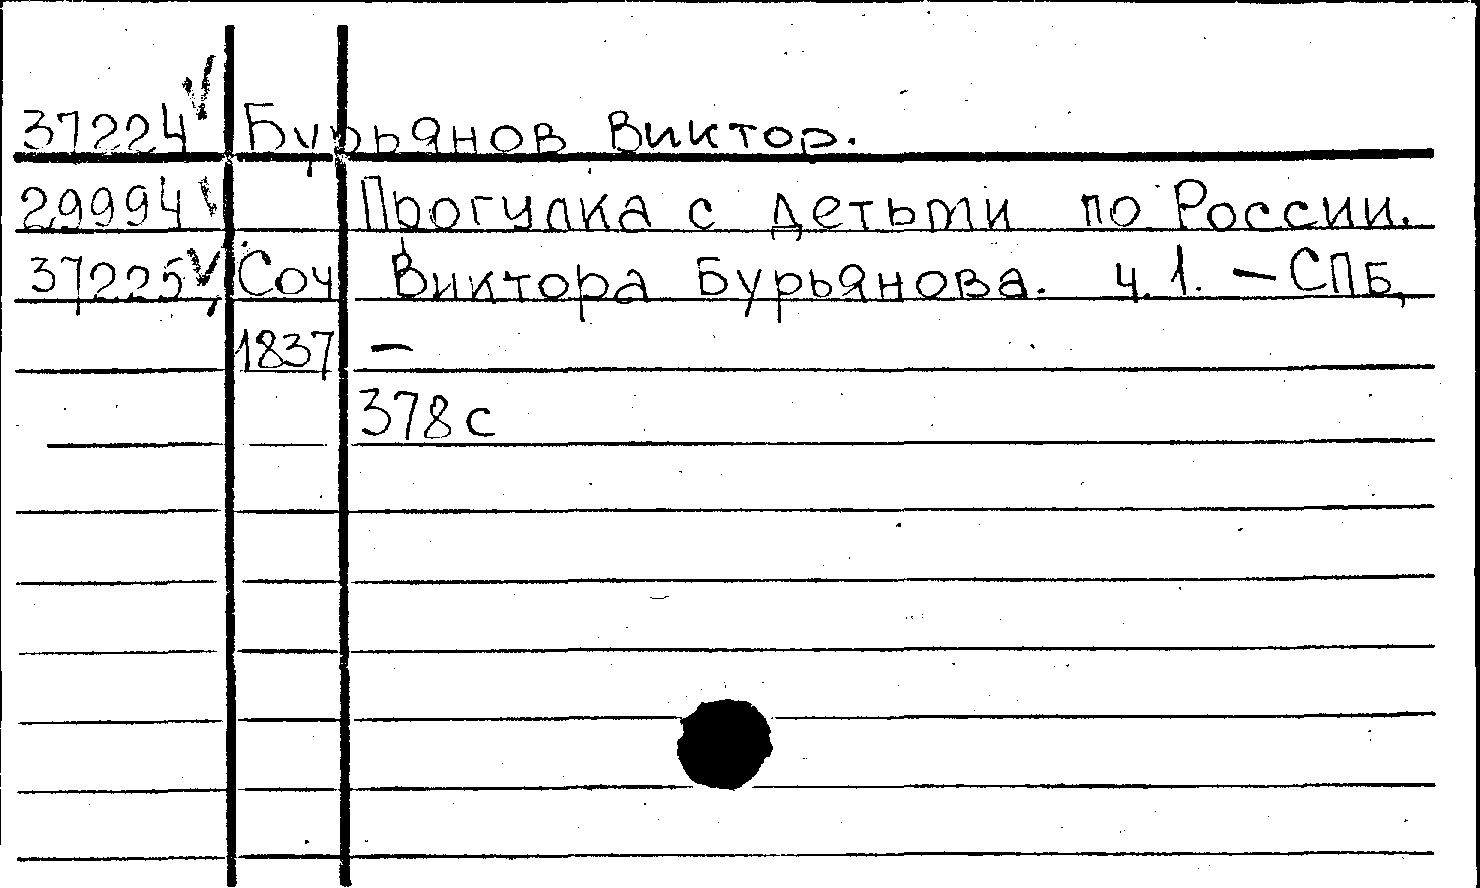 37224 Бурьянов Виктор.
29994 Прогулка с детьми по России.
37225 Соч Виктора Бурьянова. ч. 1. — СПБ,
1837 —
378 с